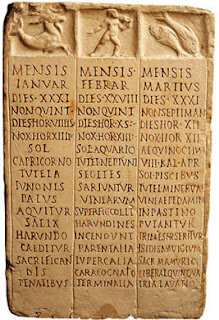 MENSIS
IANVAR
DIES·XXXI
NON·QVINT
DIES HOR VIIII
NOX HOR XIIII
SOL
CAPRICORNO
TVTELA
IVNONIS
PALVS
AQVITVR
SALIX
HARVNDO
CAEDITVR
SACRIFICAN
DIS
PENATIBVS
MENSIS
FEBRAR
DIES·XXVIII
NON·QVINT
DIES HOR·X S
NOX HOR·XIII
SOL AQVARIO
TVTEL NEPTVNI
SEGETES
SARIVNTVR
VINEARVM
SVPERFIC COLIT
HARVNDINES
INCENDVNT
PARENTALIA
LVPERCALIA
CARA COGNATIO
TERMINALIA
MENSIS
MARTIVS
DIES·XXXI
NON SEPTIMAN
DIES HOR·XII
NOX HOR XII
AEQVINOCTIVM
VIII·KAL·APR
SOL PISCIBVS
TVTEL MINERVAE
VINEAE PEDAMIN
IN PASTINO
PVTANTVR
TRIMESTR SERITVR
SACR MAMVRIO
LIBERAL QVINQVA
TRIA LAVATIO